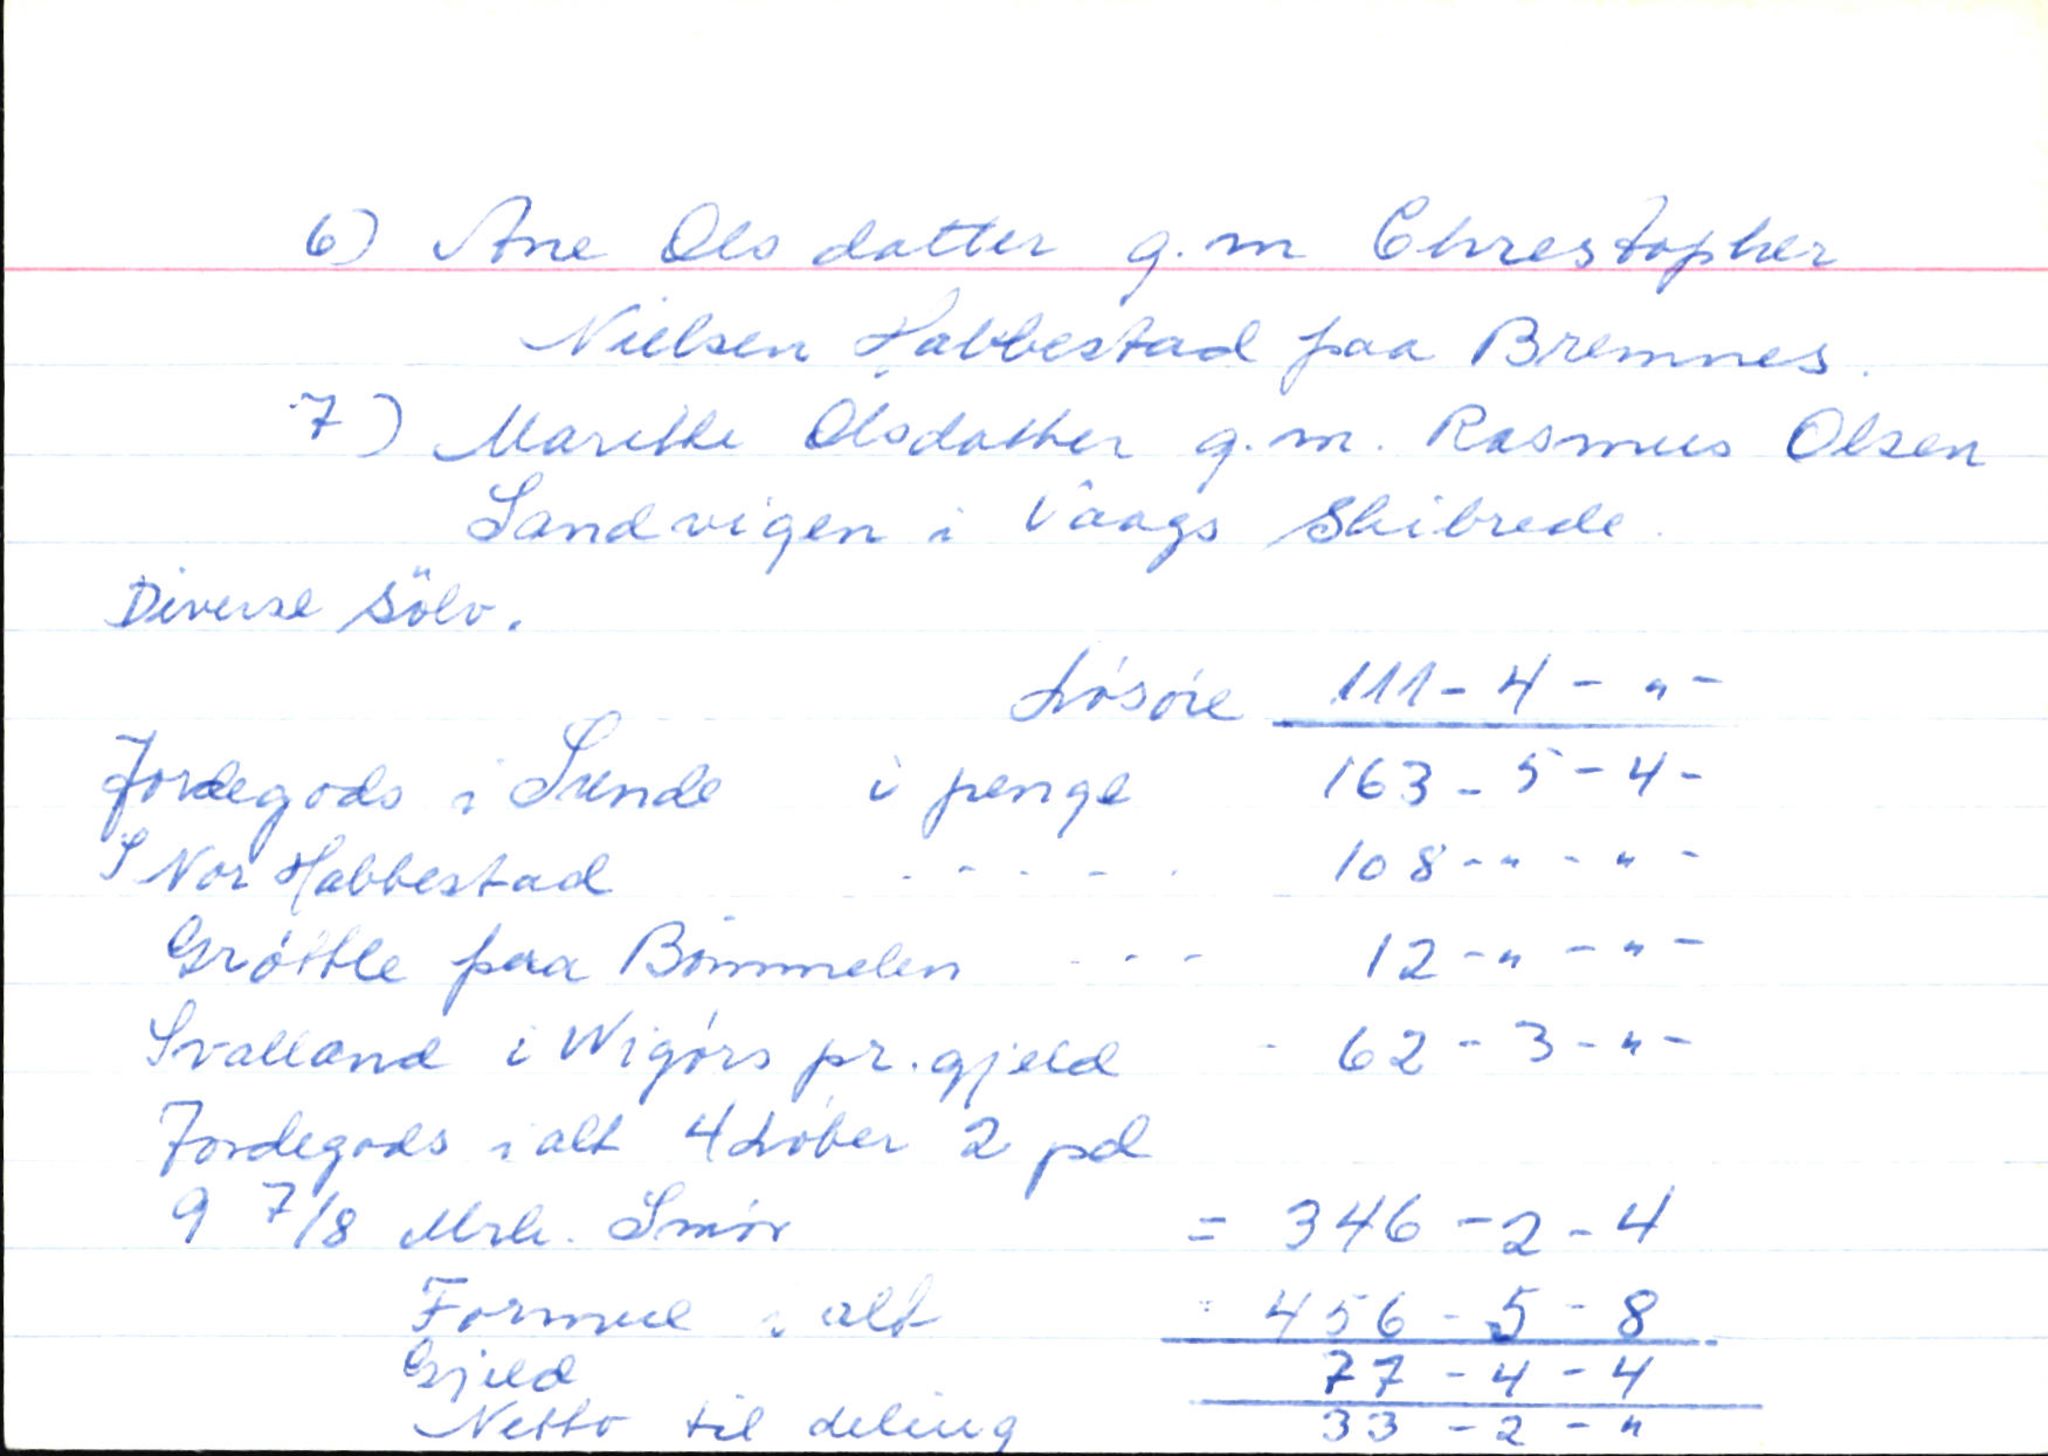 6) Ane Olsdatter g.m Chrestopher
Nielsen Habbestad paa Bremnes.
7) Marithe Olsdatter g.m. Rasmus Olsen
Sandvigen i Vaags Skibrede.
Diverse Sölv.
Lósóre 111 - 4 - " -
Jordegods i Sunde i penge 163 - 5 - 4 -
I Nor Habbestad - - - - - 108 - " - " -
Gróttle paa Bómmelen - - - 12 - " - " -
Svalland i Wigórs pr. gjeld - 62 - 3 - " -
Jordegods i alt 4 Lóber 2 pd
9 7/8 Mrk. Smór = 346 - 2 - 4
Formue i alt - 456 - 5 - 8
Gjeld 77 - 4 - 4
Netto til deling 33 - 2 - "